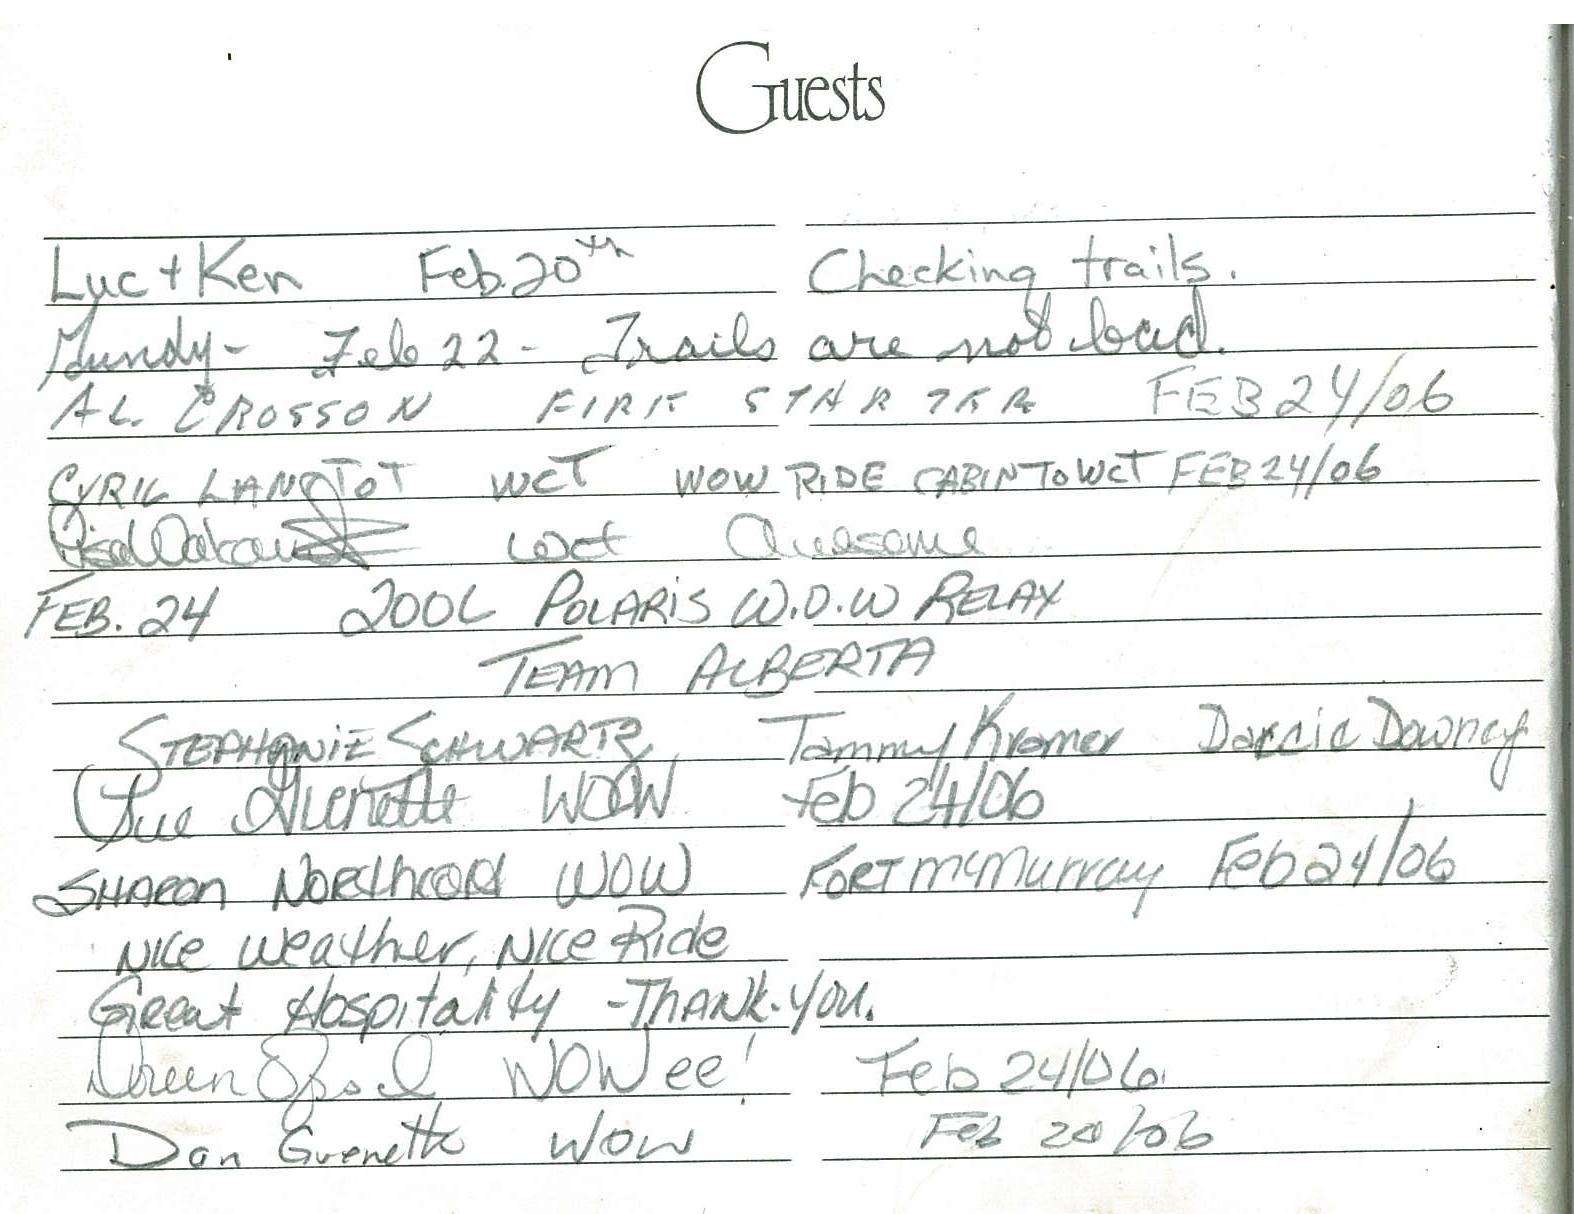 Guests
Luc + Ken Feb. 20th Checking trails.
Mundy - Feb 22 - Trails are not bad.
AL CROSSON FEB 24/06
CYRIL LANGTOT WCT WOW RIDE CABIN TO WCT FEB 24/06
wct Awesome
FEB. 24 2006 POLARIS W.O.W RELAY
TEAM ALBERTA
STEPHANIE SCHWARTZ Tammy Kramer Darcie Downey
Sue Guenette WOW Feb 24/06
SHARON Northcott WOW FORT McMurray Feb 24/06
Nice weather, Nice Ride
Great Hospitality - Thank-you.
Doreen WOWee! Feb 24/06
Dan Guenette WOW Feb /06